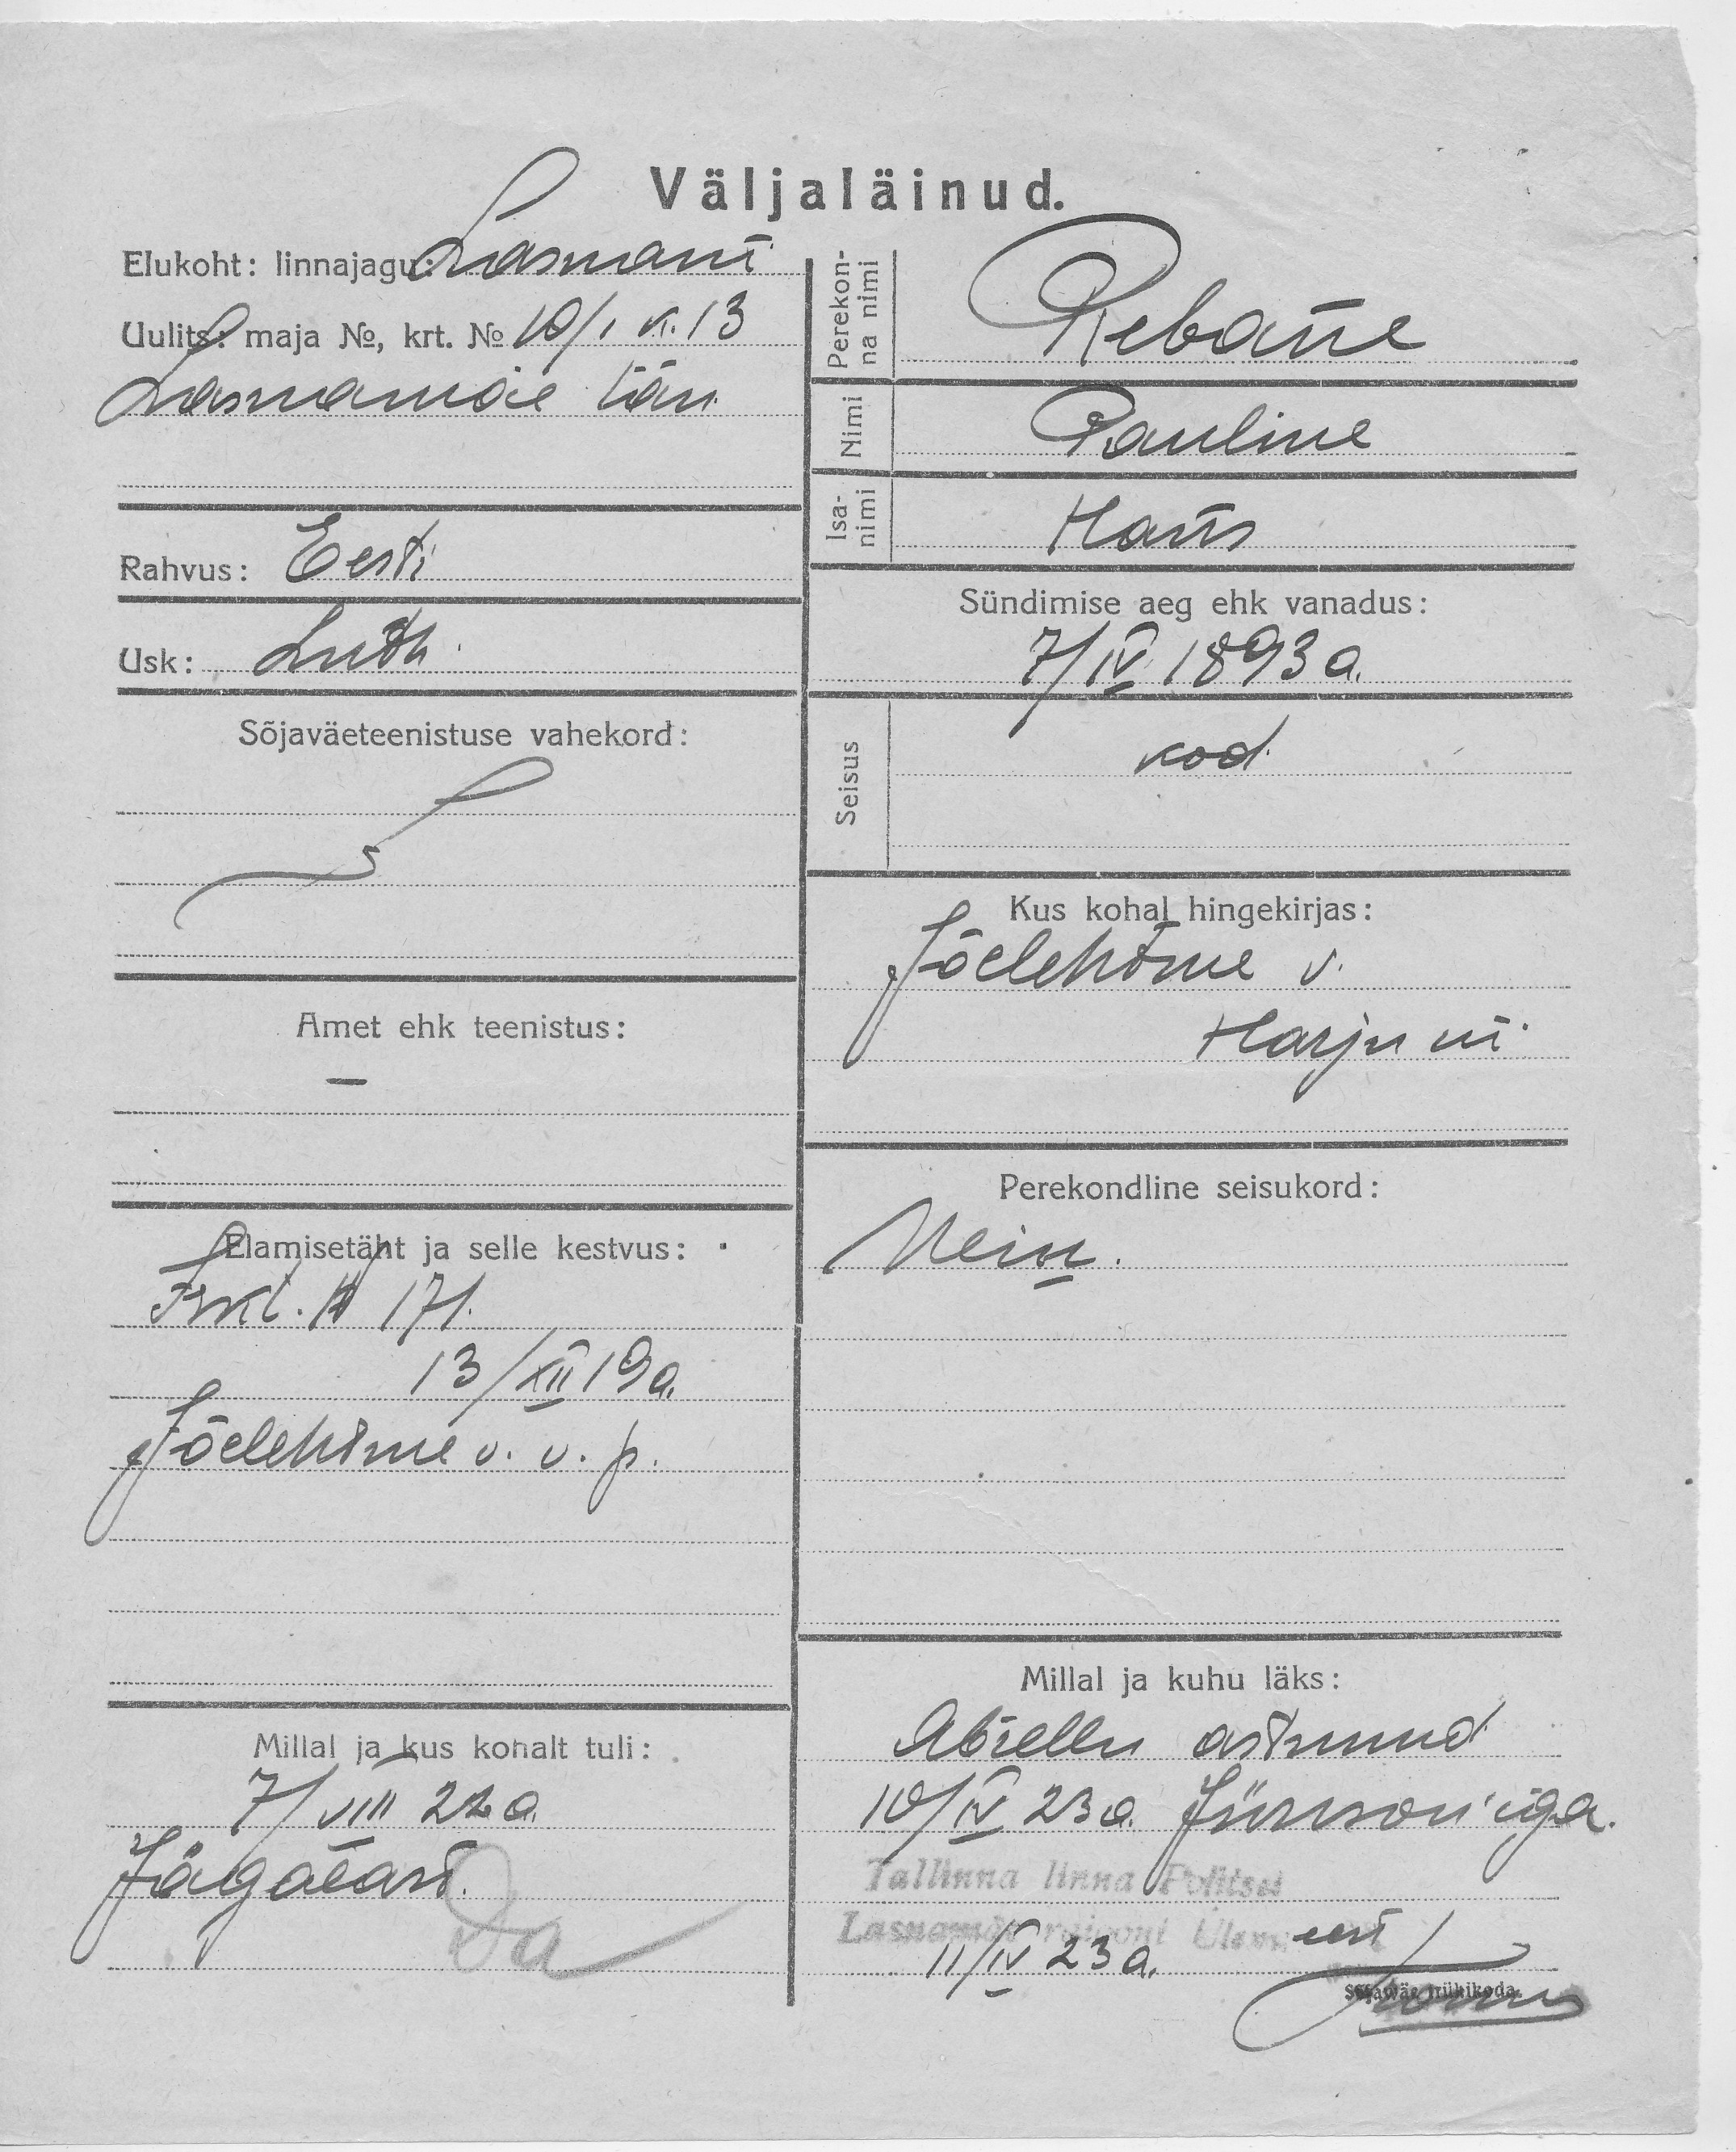 Väljaläinud.
Elukoht: linnajagu: Lasnam.
Uulits: maja №, krt. № 10/1 k. 13
Lasnamäe tän.
Rahvus: Eesti
Usk: Luth.
Sõjaväeteenistuse vahekord:
Amet ehk teenistus:
—
Elamisetäht ja selle kestvus:
171.
13/XII 19a.
Jõelehtme v. v. p.
Millal ja kus kohalt tuli:
7/VIII 22a.
Jägalast.
Da
Perekonna nimi
Rebane
Nimi
Pauline
Isanimi
Hans
Sündimise aeg ehk vanadus:
7/IV 1893 a.
Seisus
kod.
Kus kohal hingekirjas:
Jõelehtme v.
Harju m.
Perekondline seisukord:
Neiu.
Millal ja kuhu läks:
Abiellu astunud
10/IV 23a. Jürison'iga.
Tallinna linna Politsei
Lasnamäe rajooni Ülem eest
11/IV 23a.
Sõjaväe trükikoda.